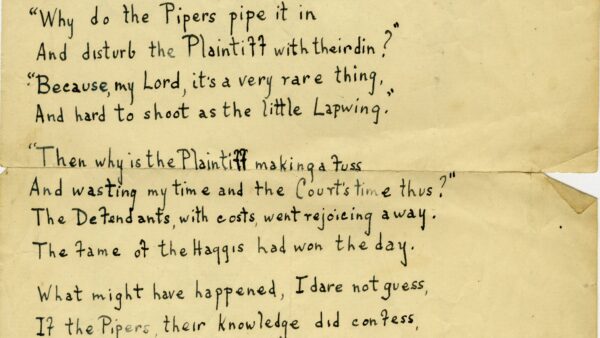 "Why do the Pipers pipe it in
And disturb the Plaintiff with their din?"
"Because, my Lord, it's a very rare thing,
And hard to shoot as the little Lapwing."
"Then why is the Plaintiff making a fuss
And wasting my time and the Court's time thus?"
The Defendants, with costs, went rejoicing away.
The fame of the Haggis had won the day.
What might have happened, I dare not guess,
If the Pipers, their knowledge did confess,